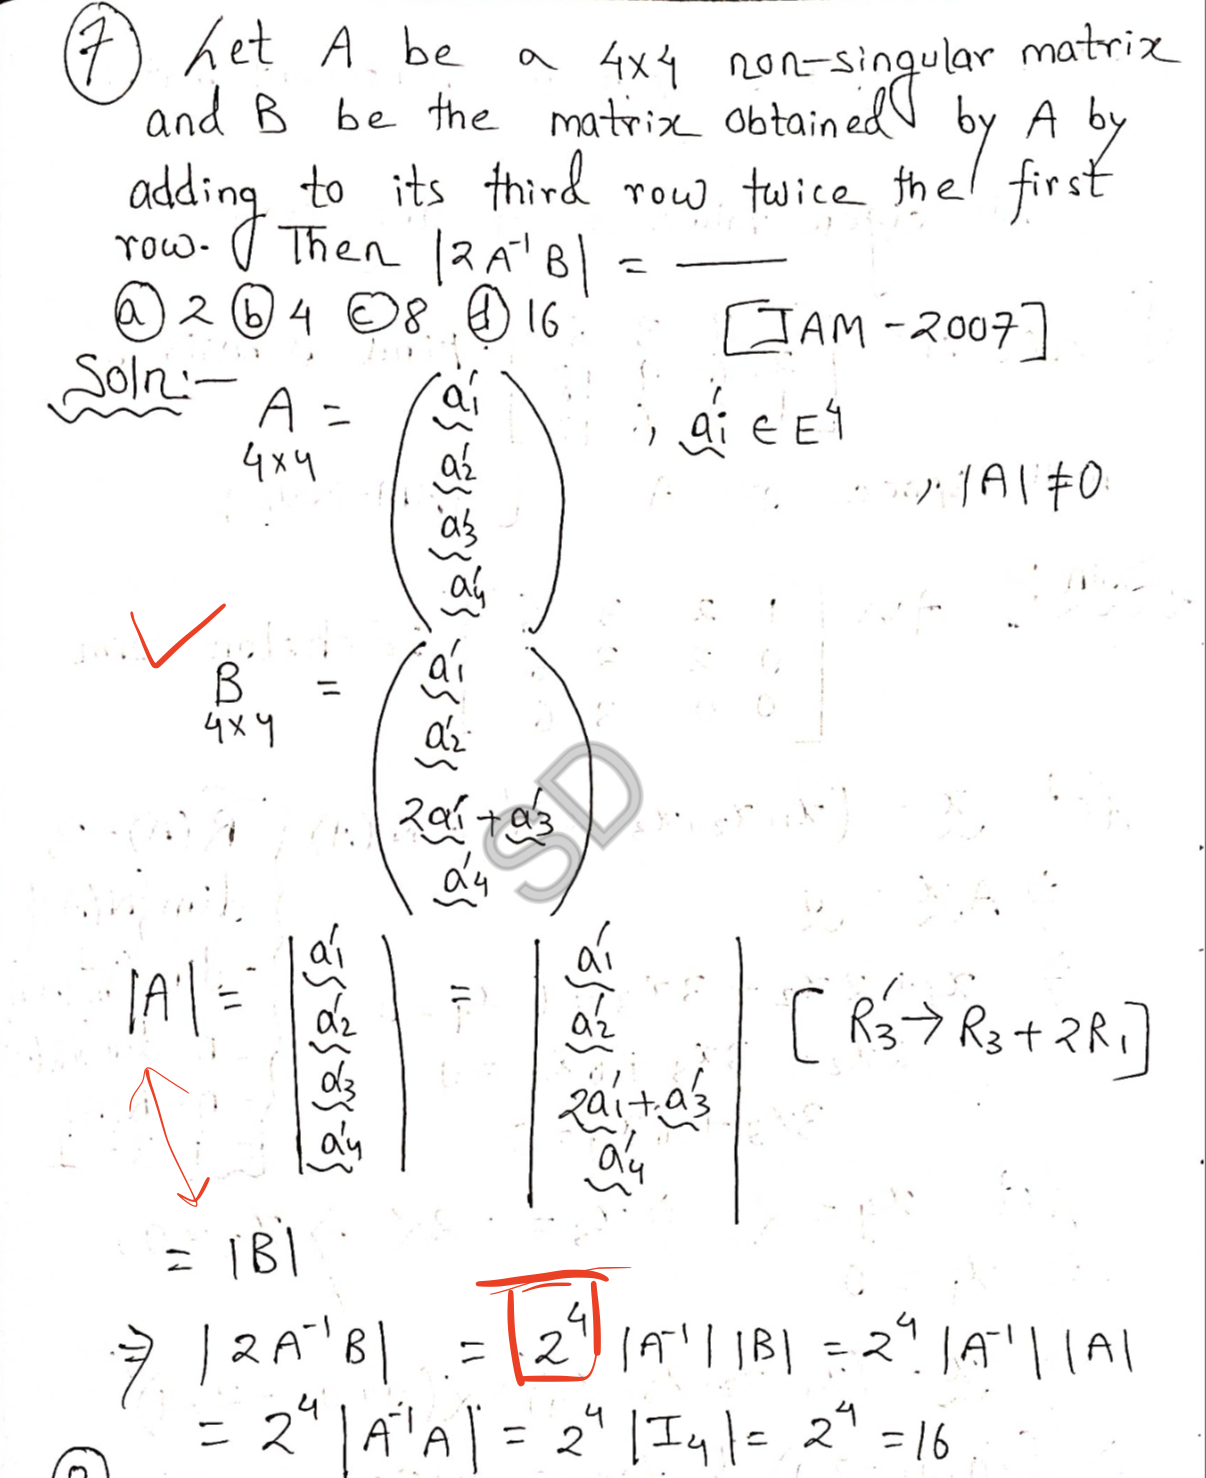 7 Let A be a 4x4 non-singular matrix
and B be the matrix obtained by A by
adding to its third row twice the first
row. Then |2A⁻¹B| = ———
(a) 2 (b) 4 (c) 8 (d) 16
[JAM-2007]
Soln:-
A = ( a₁′ ; a₁′ ∈ E⁴
4x4 a₂′ , |A| ≠ 0
a₃′
a₄′ )
B = ( a₁′
4x4 a₂′
2a₁′ + a₃′
a₄′ )
SD
|A| = | a₁′ a₂′ a₃′ a₄′ | = | a₁′ a₂′ 2a₁′ + a₃′ a₄′ | [R₃′ → R₃ + 2R₁]
= |B|
⇒ |2A⁻¹B| = 2⁴ |A⁻¹| |B| = 2⁴ |A⁻¹| |A|
= 2⁴ |A⁻¹A| = 2⁴ |I₄| = 2⁴ = 16